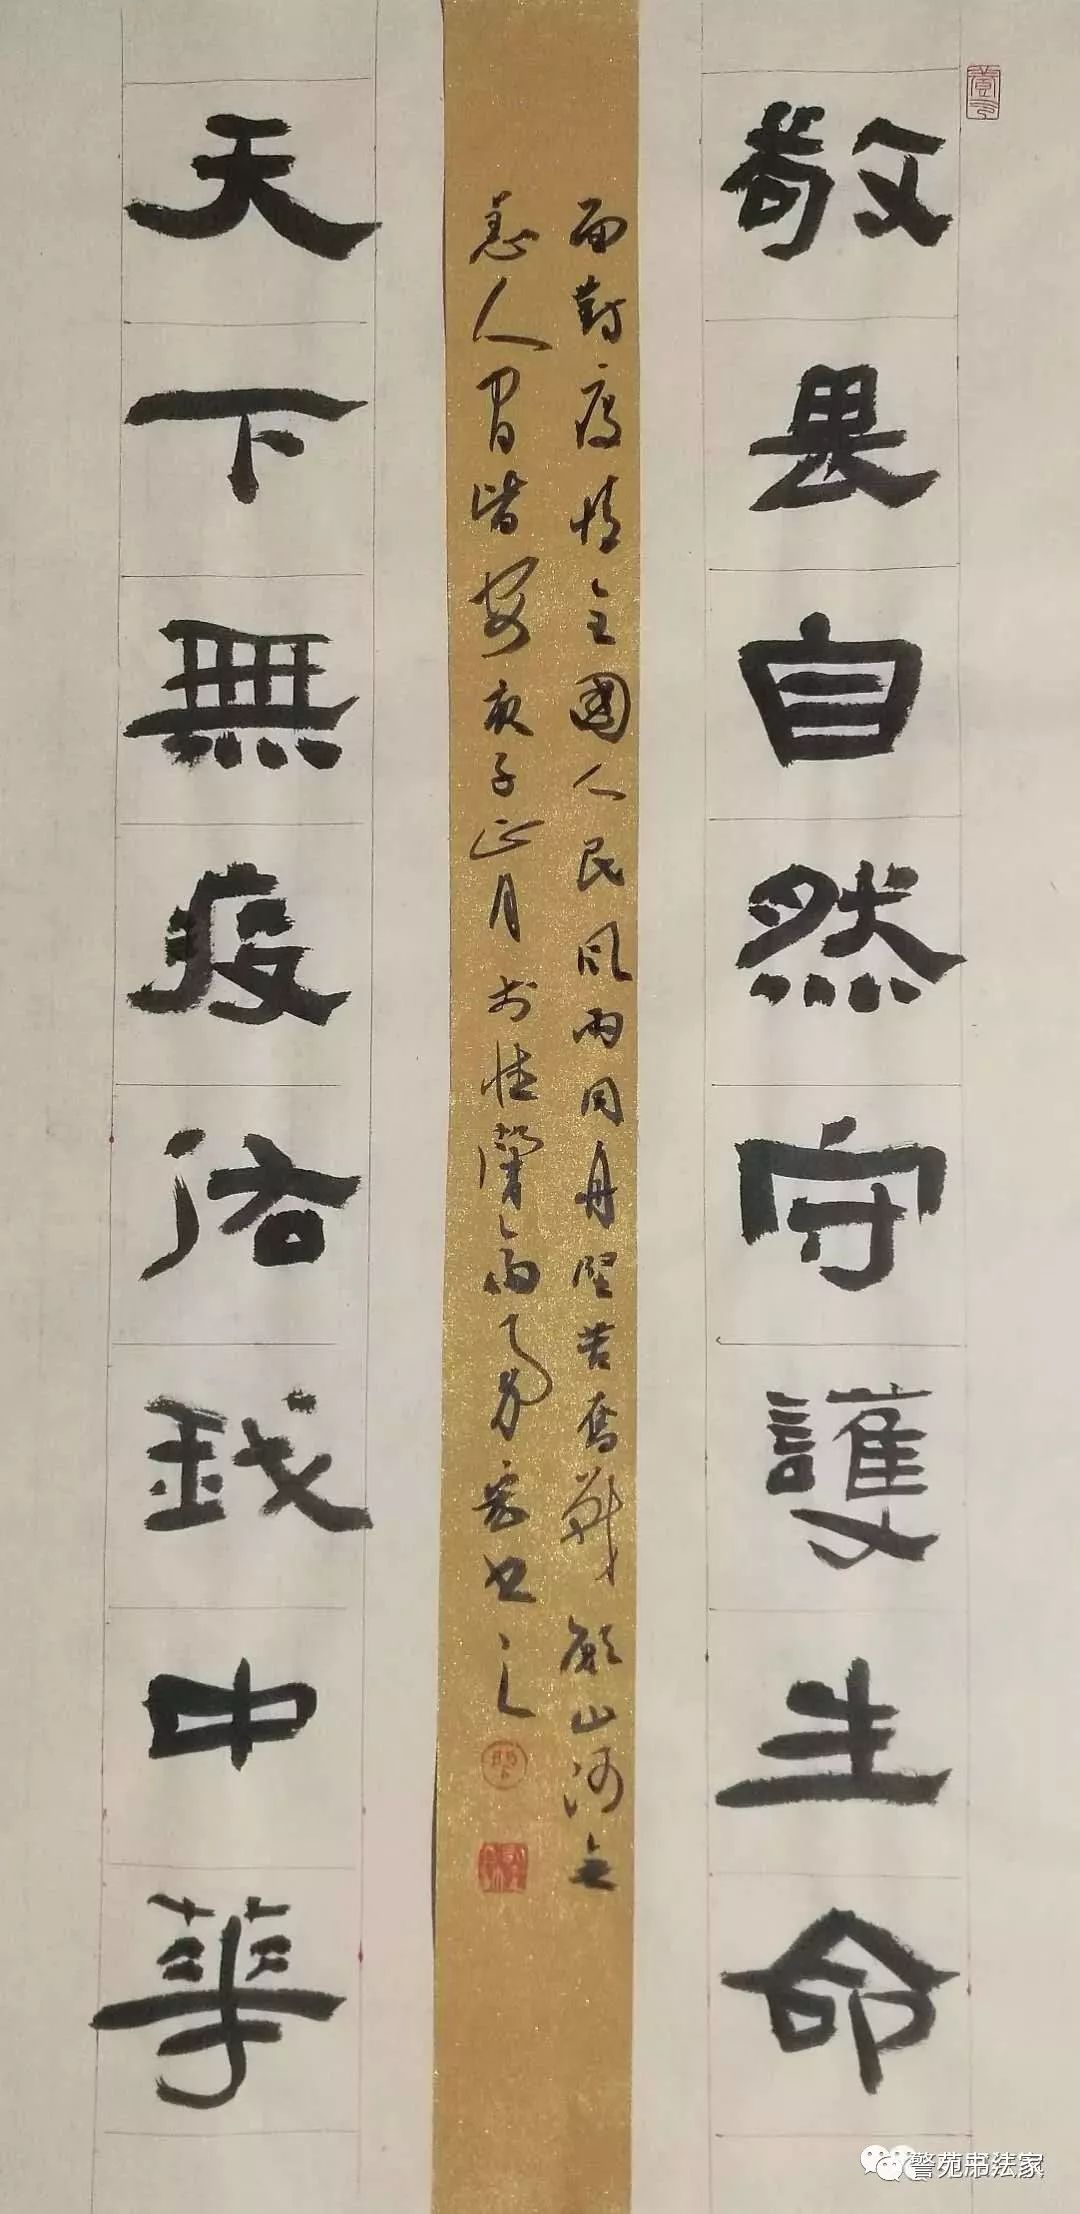 敬畏自然守護生命
面對疫情全國人民風雨同舟堅苦奮戰願山河無
恙人間皆安庚子正月於
書之
天下無疫佑我中華
警苑书法家